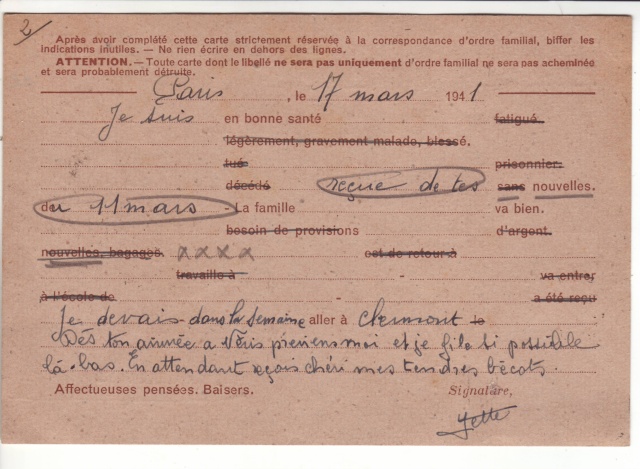 2/
Après avoir complété cette carte strictement réservée à la correspondance d'ordre familial, biffer les
indications inutiles. — Ne rien écrire en dehors des lignes.
ATTENTION. — Toute carte dont le libellé ne sera pas uniquement d'ordre familial ne sera pas acheminée
et sera probablement détruite.
Paris, le 17 mars 1941
Je suis en bonne santé fatigué.
légèrement, gravement malade, blessé.
tué prisonnier.
décédé reçue de tes sans nouvelles.
du 11 mars La famille va bien.
besoin de provisions d'argent.
nouvelles, bagages xxxx est de retour à
travaille à va entrer
à l'école de a été reçu
Je devais dans la semaine aller à Clermont le
Dès ton arrivée a préviens moi et je file si possible
là-bas. En attendant reçois chéri mes tendres bécots.
Affectueuses pensées. Baisers. Signature,
Yette